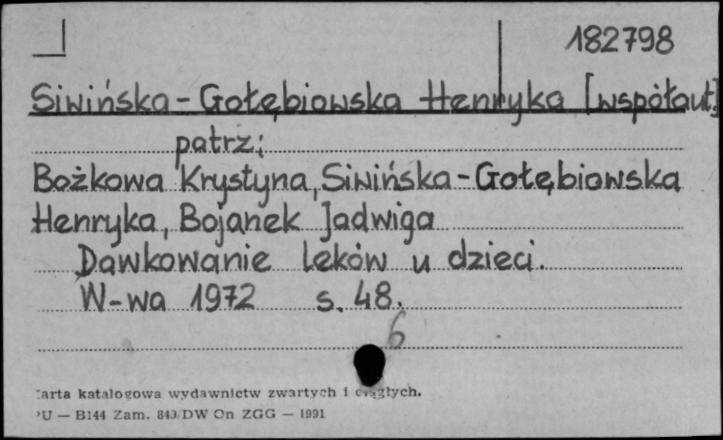 182798
Siwińska-Gołębiowska Henryka [współaut]
patrz:
Bożkowa Krystyna, Siwińska-Gołębiowska
Henryka, Bojanek Jadwiga
Dawkowanie leków u dzieci.
W-wa 1972 s. 48.
6
arta katalogowa wydawnictw zwartych i ciągłych.
PU — B144 Zam. 843/DW On ZGG — 1991